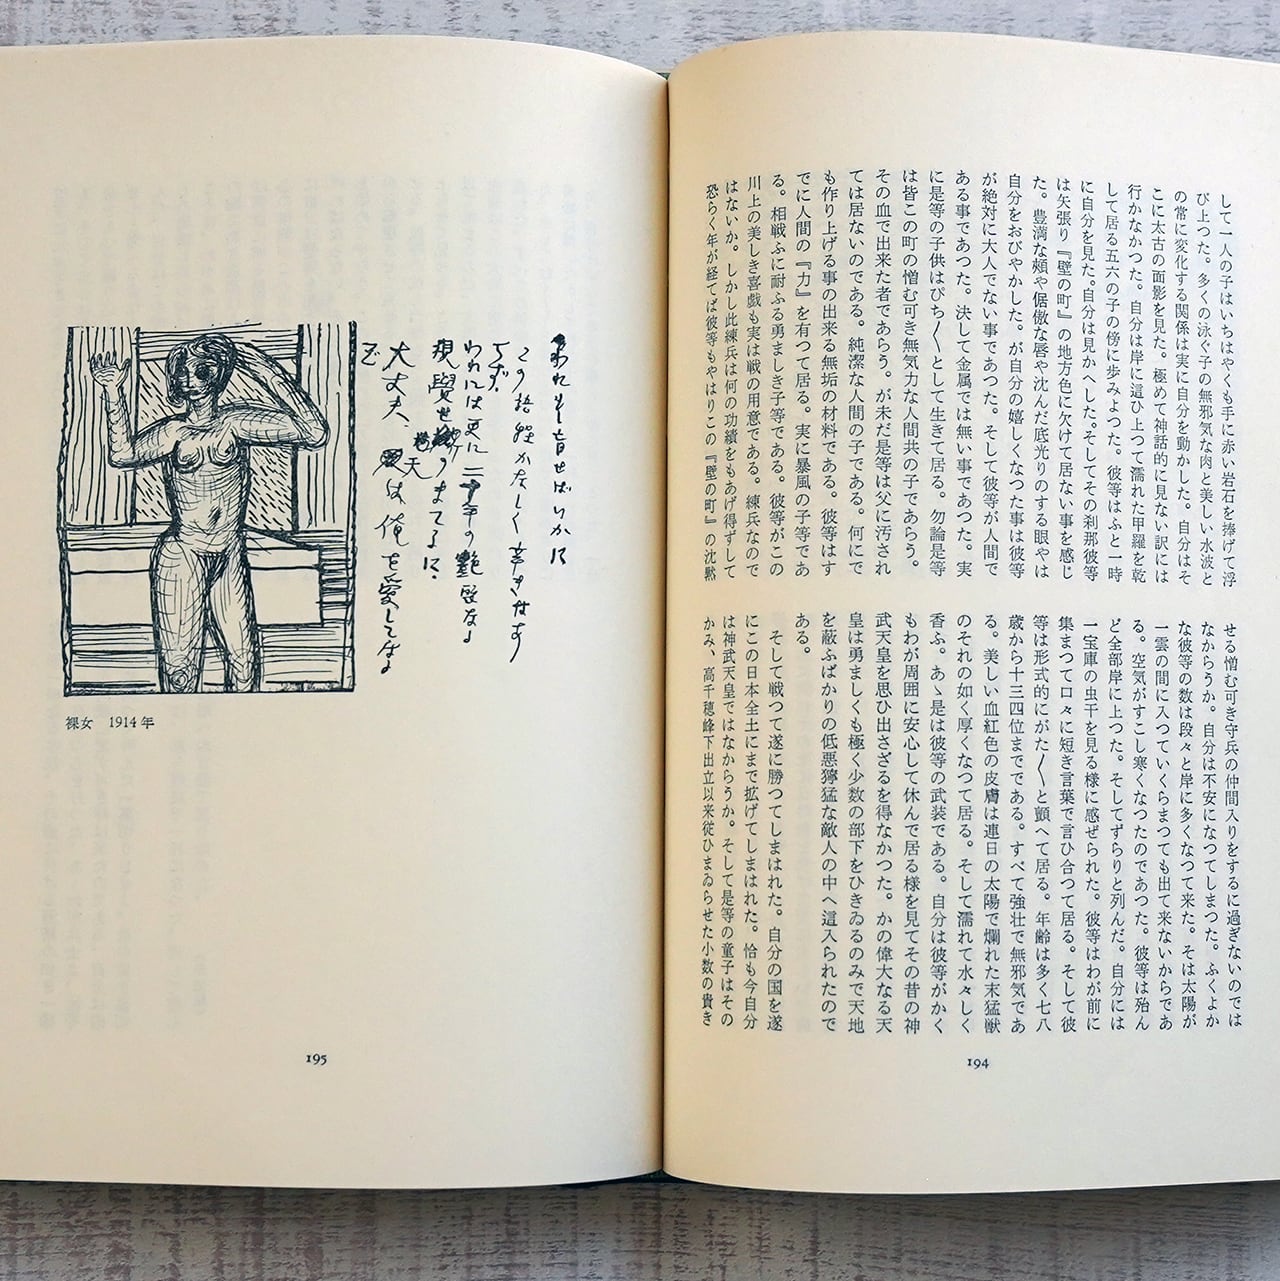 して一人の子はいちはやくも手に赤い岩石を捧げて浮
び上つた。多くの泳ぐ子の無邪気な肉と美しい水波と
の常に変化する関係は実に自分を動かした。自分はそ
こに太古の面影を見た。極めて神話的に見ない訳には
行かなかつた。自分は岸に這ひ上つて濡れた甲羅を乾
して居る五六の子の傍に歩みよつた。彼等はふと一時
に自分を見た。自分は見かへした。そしてその刹那彼等
は矢張り『壁の町』の地方色に欠けて居ない事を感じ
た。豊満な頰や倨傲な唇や沈んだ底光りのする眼やは
自分をおびやかした。が自分の嬉しくなつた事は彼等
が絶対に大人でない事であつた。そして彼等が人間で
ある事であつた。決して金属では無い事であつた。実
に是等の子供はぴち〱として生きて居る。勿論是等
は皆この町の憎む可き無気力な人間共の子であらう。
その血で出来た者であらう。が未だ是等は父に汚され
ては居ないのである。純潔な人間の子である。何にで
も作り上げる事の出来る無垢の材料である。彼等はす
でに人間の『力』を有つて居る。実に暴風の子等であ
る。相戦ふに耐ふる勇ましき子等である。彼等がこの
川上の美しき喜戯も実は戦の用意である。練兵なので
はないか。しかし此練兵は何の功績をもあげ得ずして
恐らく年が経てば彼等もやはりこの『壁の町』の沈黙
せる憎む可き守兵の仲間入りをするに過ぎないのでは
なからうか。自分は不安になつてしまつた。ふくよか
な彼等の数は段々と岸に多くなつて来た。そは太陽が
一雲の間に入つていくらまつても出て来ないからであ
る。空気がすこし寒くなつたのであつた。彼等は殆ん
ど全部岸に上つた。そしてずらりと列んだ。自分には
一宝庫の虫干を見る様に感ぜられた。彼等はわが前に
集まつて口々に短き言葉で言ひ合つて居る。そして彼
等は形式的にがた〱と顫へて居る。年齢は多く七八
歳から十三四位までである。すべて強壮で無邪気であ
る。美しい血紅色の皮膚は連日の太陽で爛れた末猛獣
のそれの如く厚くなつて居る。そして濡れて水々しく
香ふ。あゝ是は彼等の武装である。自分は彼等がかく
もわが周囲に安心して休んで居る様を見てその昔の神
武天皇を思ひ出さざるを得なかつた。かの偉大なる天
皇は勇ましくも極く少数の部下をひきゐるのみで天地
を蔽ふばかりの低悪獰猛な敵人の中へ這入られたので
ある。
そして戦つて遂に勝つてしまはれた。自分の国を遂
にこの日本全土にまで拡げてしまはれた。恰も今自分
は神武天皇ではなからうか。そして是等の童子はその
かみ、高千穂峰下出立以来従ひまゐらせた小数の貴き
194
われもし盲せばいかに
この語程かなしく辛きなす
らず
われには更に二十年の艶麗なる
視覚せ のまてるに
大丈夫、天は俺を愛してはる
裸女 1914年
195